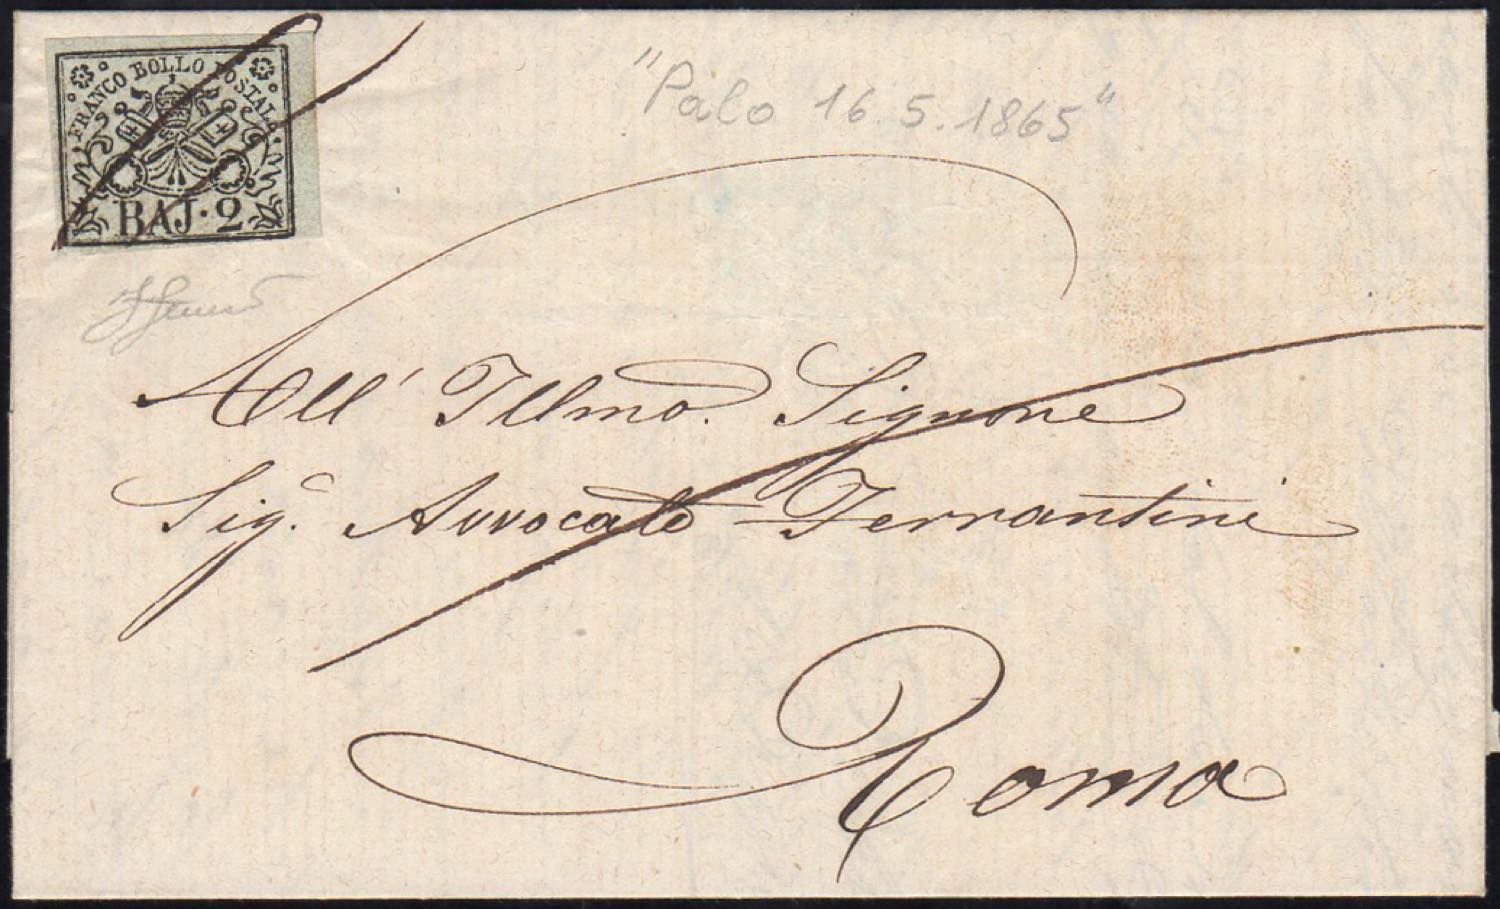 FRANCO BOLLO POSTALE
BAJ·2
"Palo 16.5.1865"
All' Illmo. Signore
Sig.e Avvocato Ferrantini
Roma